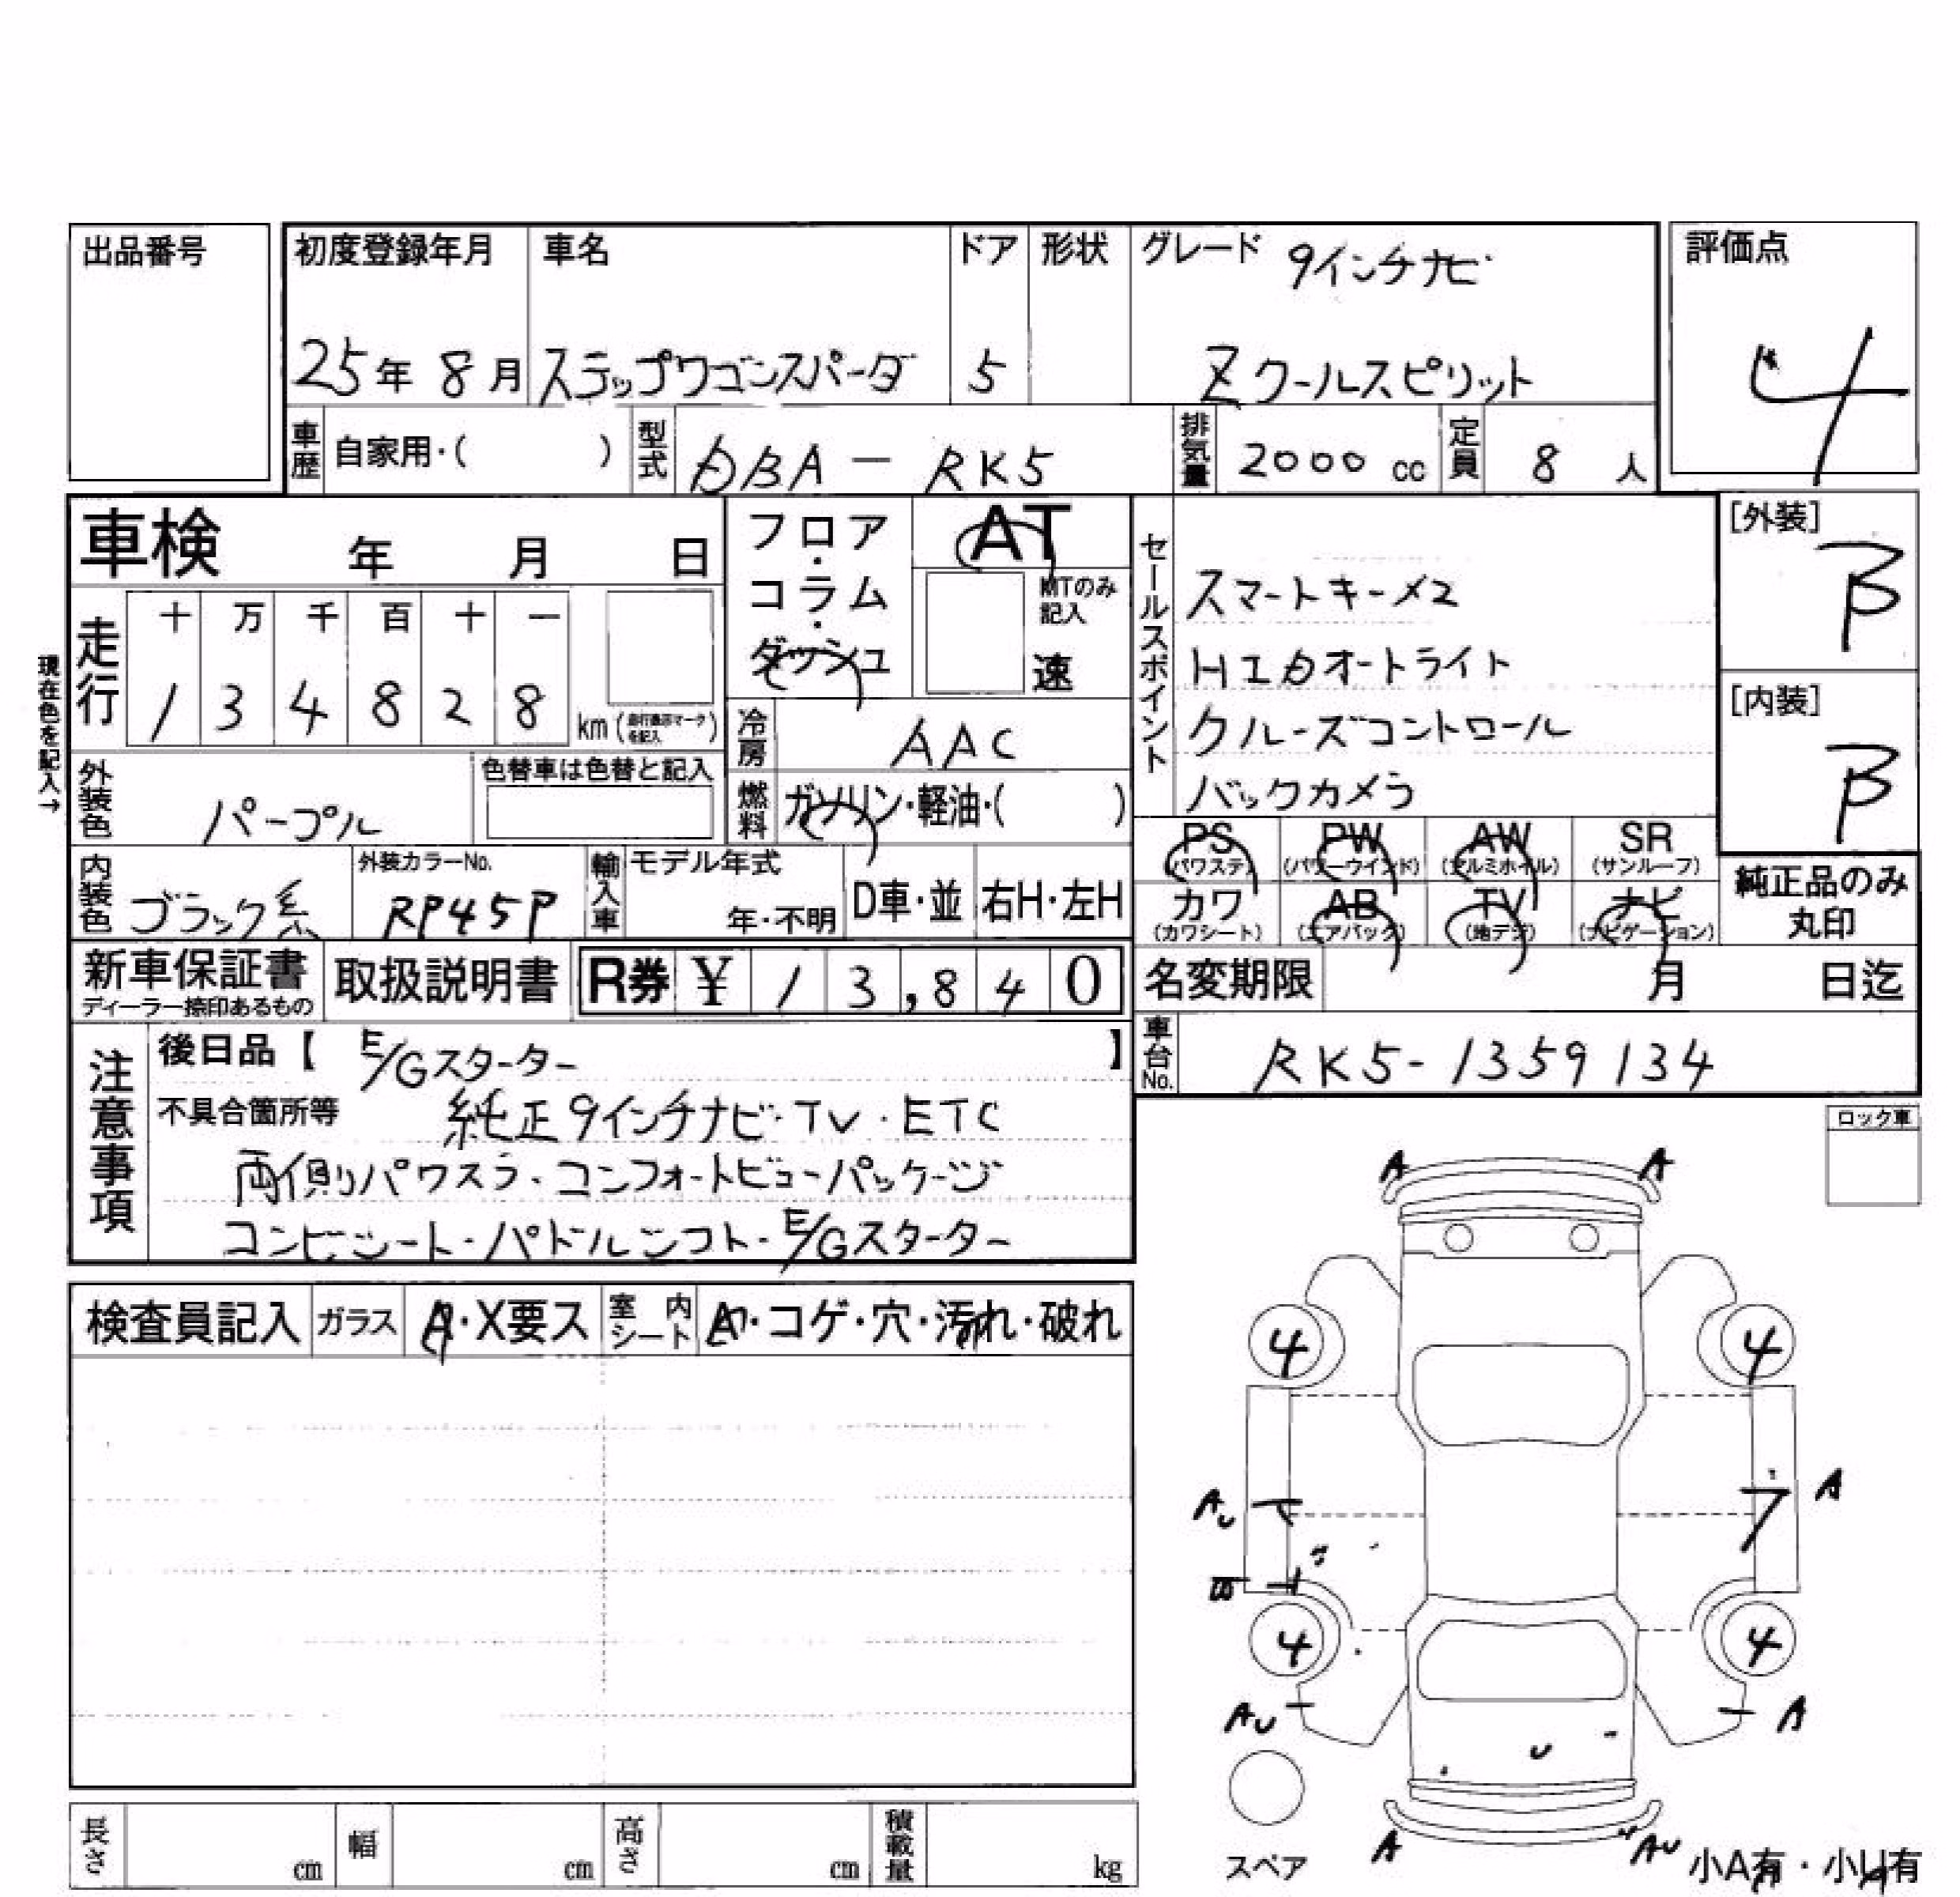 出品番号
初度登録年月 車名 ドア 形状 グレード 9インチナビ
評価点
25年 8月 ステップワゴンスパーダ 5 Zクールスピリット
4
車歴 自家用・( ) 型式 DBA-RK5 排気量 2000 cc 定員 8 人
車検 年 月 日
フロア・コラム・ダッシュ
AT
MTのみ記入
速
セールスポイント
スマートキー×2
HIDオートライト
クルーズコントロール
バックカメラ
[外装] B
[内装] B
現在色を記入→
走行 十 万 千 百 十 一
1 3 4 8 2 8 km (走行表示マークを記入)
冷房 AAC
外装色 パープル 色替車は色替と記入
燃料 ガソリン・軽油・( )
PS (パワステ) PW (パワーウインド) AW (アルミホイル) SR (サンルーフ)
カワ (カワシート) AB (エアバック) TV (地デジ) ナビ (ナビゲーション)
純正品のみ丸印
内装色 ブラック系 外装カラーNo. RP45P 輸入車 モデル年式 年・不明 D車・並 右H・左H
新車保証書 ディーラー捺印あるもの 取扱説明書 R券 ¥ 13,840
名変期限 月 日迄
車台No. RK5-1359134
注意事項
後日品【 E/Gスターター 】
不具合箇所等 純正9インチナビ・TV・ETC
両側パワスラ・コンフォートビューパッケージ
コンビシート・パドルシフト・E/Gスターター
ロック車
検査員記入 ガラス A・X要ス 室内シート コゲ・穴・汚れ・破れ
A A
4 4
AU A
4 4
AU A
U
A AU
スペア
小A有・小U有
長さ cm 幅 cm 高さ cm 積載量 kg